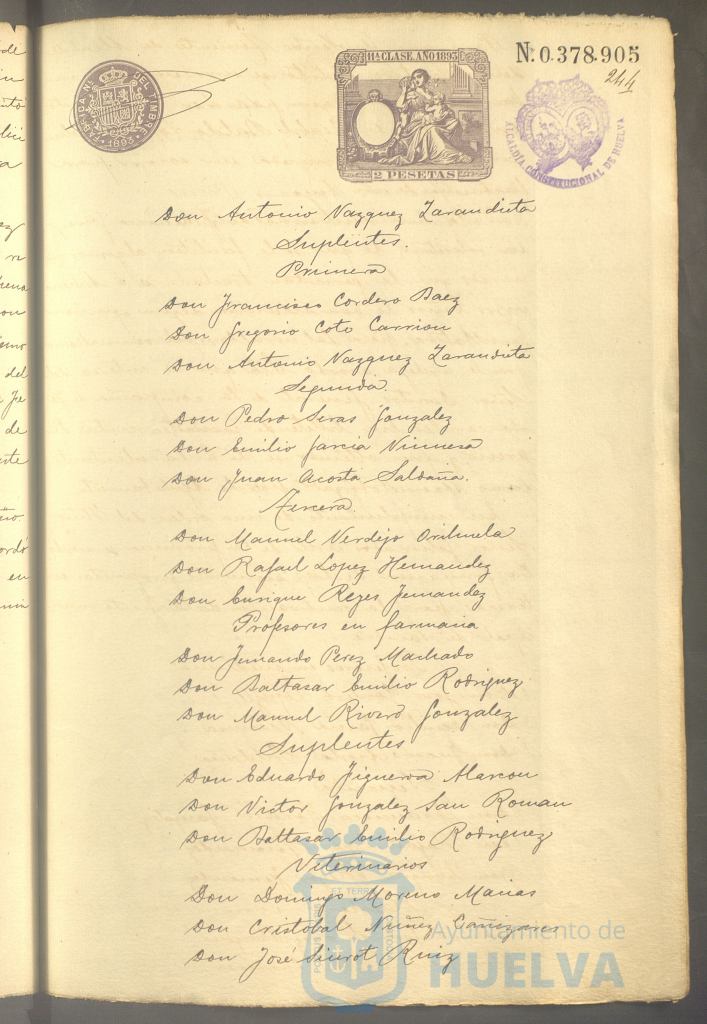 FABRICA NL. DEL TIMBRE
1893
11ª CLASE. AÑO 1893
2 PESETAS
N. 0.378.905
244
ALCALDÍA CONSTITUCIONAL DE HUELVA
Don Antonio Vazquez Zarandieta
Suplentes.
Primera
Don Francisco Cordero Baez
Don Gregorio Coto Carrion
Don Antonio Vazquez Zarandieta
Segunda.
Don Pedro Seras Gonzalez
Don Emilio Garcia Vinuesa
Don Juan Acosta Saldaña.
Tercera.
Don Manuel Verdejo Orihuela
Don Rafael Lopez Hernandez
Don Enrique Reyes Fernandez
Profesores en farmacia
Don Fernando Perez Machado
Don Baltasar Emilio Rodriguez
Don Manuel Rivero Gonzalez
Suplentes
Don Eduardo Figueroa Alarcon
Don Victor Gonzalez San Roman
Don Baltasar Emilio Rodriguez
Veterinarios
Don Domingo Moreno Macias
Don Cristóbal Nuñez Cañizares
Don José Sicurot Ruiz
Ayuntamiento de
HUELVA